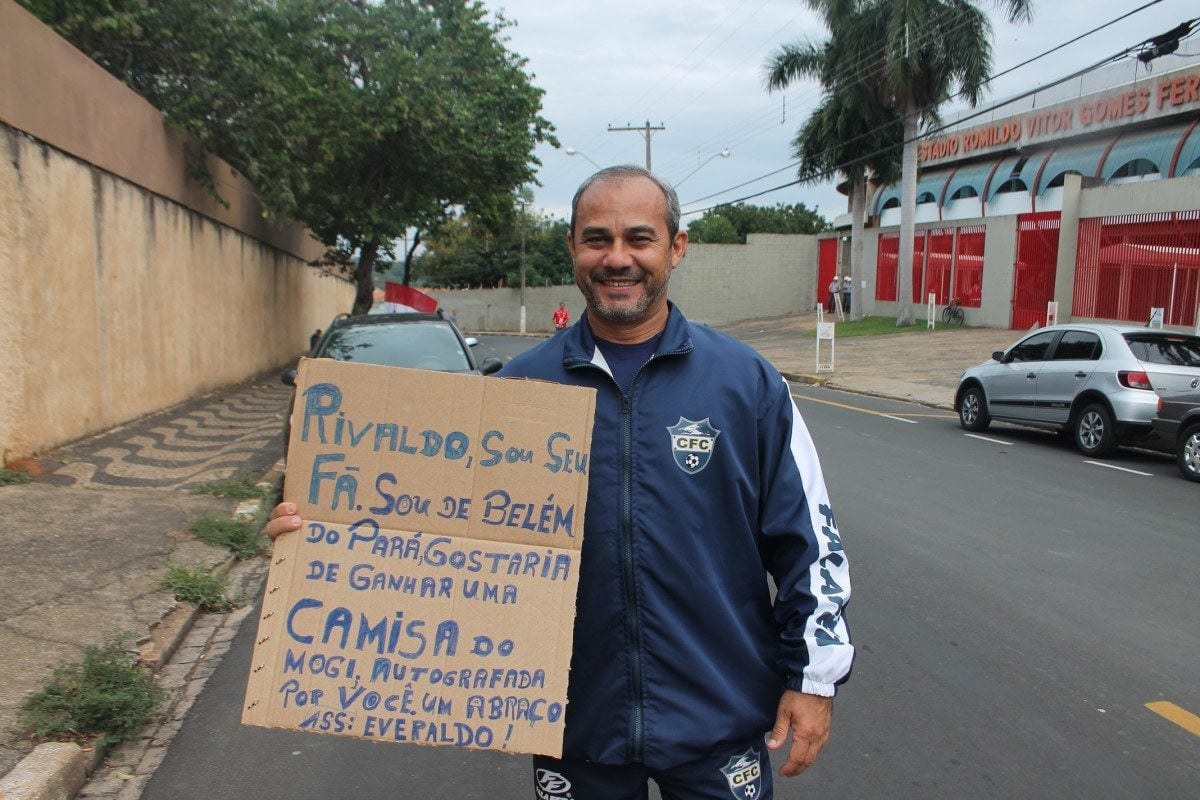 ESTADIO ROMILDO VITOR GOMES FER
RIVALDO, SOU SEU
FÃ. SOU DE BELÉM
DO PARÁ, GOSTARIA
DE GANHAR UMA
CAMISA DO
MOGI, AUTOGRAFADA
POR VOCÊ. UM ABRAÇO
ASS: EVERALDO!
CFC
CFC